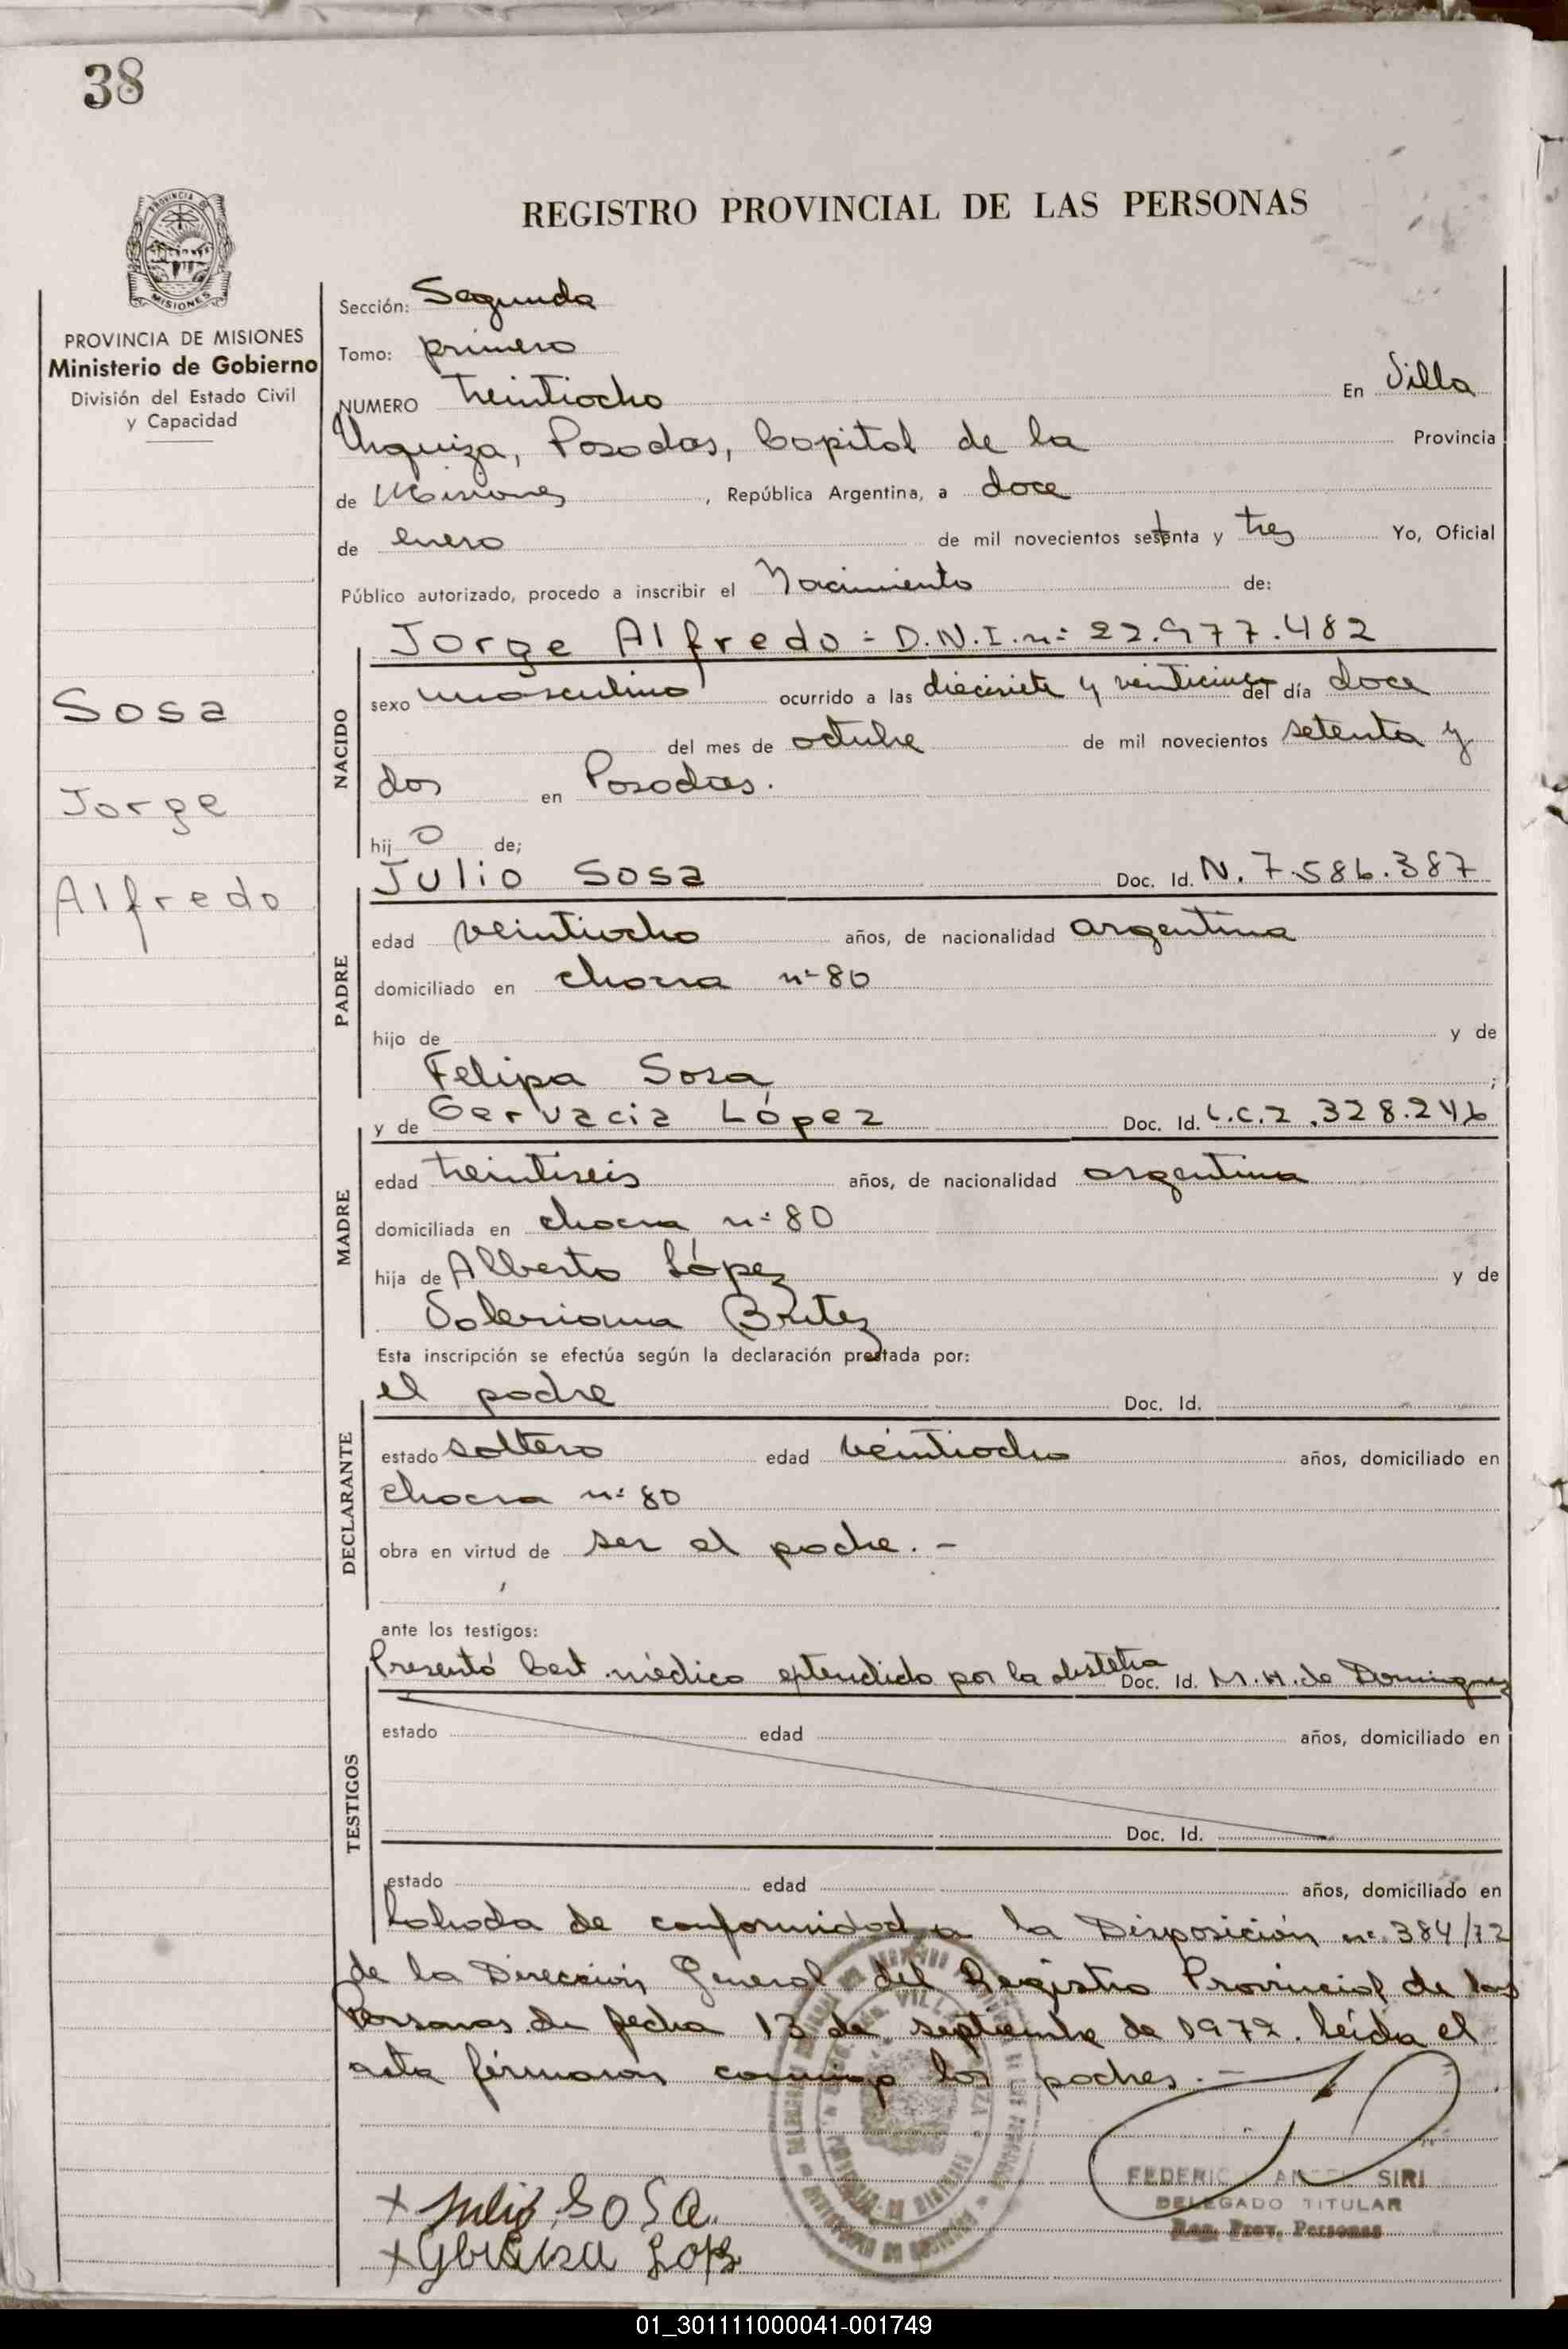 38
REGISTRO PROVINCIAL DE LAS PERSONAS
PROVINCIA DE MISIONES
Ministerio de Gobierno
División del Estado Civil
y Capacidad
Sosa
Jorge
Alfredo
Sección: Segunda
Tomo: primero
NUMERO treintiocho En Villa
Urquiza, Posadas, Capital de la Provincia
de Misiones, República Argentina, a doce
de enero de mil novecientos setenta y tres Yo, Oficial
Público autorizado, procedo a inscribir el Nacimiento de:
NACIDO
Jorge Alfredo = D.N.I. nº 22.977.482
sexo masculino ocurrido a las diecisiete y veinticinco del día doce
del mes de octubre de mil novecientos setenta y
dos en Posadas.
hij o de;
PADRE
Julio Sosa Doc. Id. N. 7.586.387
edad veintiocho años, de nacionalidad argentina
domiciliado en chacra nº 80
hijo de y de
Felipa Sosa ;
MADRE
y de Gervacia López Doc. Id. L.C. 2.328.246
edad treintiseis años, de nacionalidad argentina
domiciliada en chacra nº 80
hija de Alberto López y de
Valeriana Britez
Esta inscripción se efectúa según la declaración prestada por:
DECLARANTE
el padre Doc. Id.
estado soltero edad veintiocho años, domiciliado en
chacra nº 80
obra en virtud de ser el padre. -
ante los testigos:
TESTIGOS
Presentó Cert. médico extendido por la obstetra Doc. Id. M. H. de Dominguez
estado edad años, domiciliado en
Doc. Id.
estado edad años, domiciliado en
Labrada de conformidad a la Disposición nº 384/72
de la Dirección General del Registro Provincial de las
Personas de fecha 13 de septiembre de 1972. Leída el
acta firmaron conmigo los padres. -
x Julio Sosa
FEDERIC AN SIRI
DELEGADO TITULAR
Reg. Prov. Personas
01_301111000041-001749